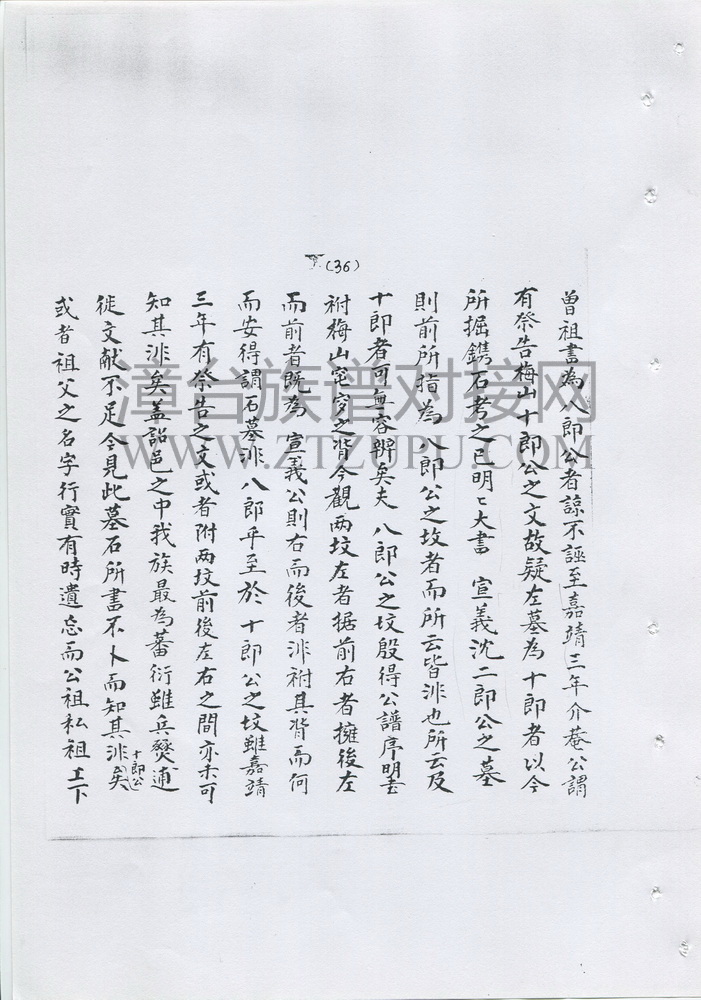 (36)
曾祖書為八郎公者諒不誣至嘉靖三年介菴公謂
有祭告梅山十郎公之文故疑左墓為十郎者以今
所掘鐫石考之已明〻大書 宣義沈二郎公之墓
則前所指為八郎公之坟者而所云皆非也所云及
十郎者可無容辨矣夫 八郎公之坟殷得公譜序明去
祔梅山窀穸之背今觀两坟左者据前右者擁後左
而前者既為 宣義公則右而後者非祔其背而何
而安得謂石墓非八郎乎至於十郎公之坟雖嘉靖
三年有祭告之文或者附两坟前後左右之間亦未可
知其非矣盖詔邑之中我族最為蕃衍雖兵燹逋
徙文献不足今見此墓石所書不卜而知其非十郎公矣
或者祖父之名字行實有時遺忘而公祖私祖上下
漳台族谱对接网
WWW.ZTZUPU.COM